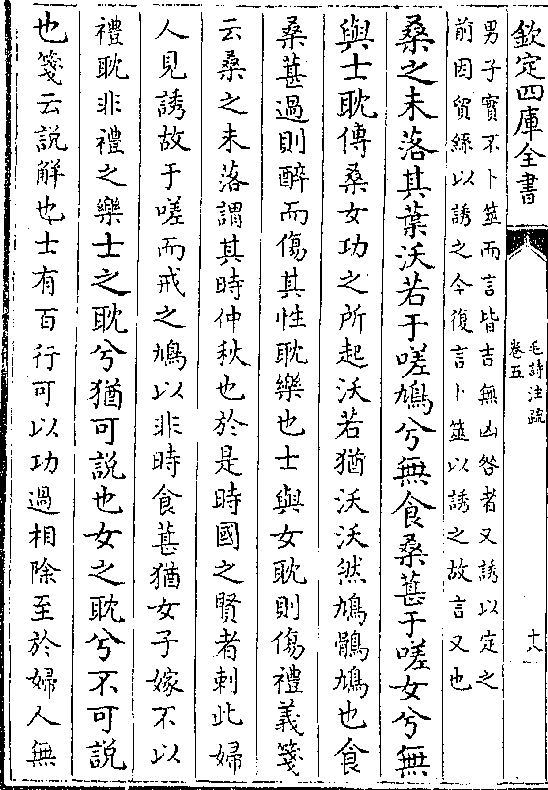 欽定四庫全書
毛詩注疏
卷五
十八
男子實不卜筮而言皆吉無凶咎者又誘以定之
前因貿絲以誘之今復言卜筮以誘之故言又也
桑之未落其葉沃若于嗟鳩兮無食桑葚于嗟女兮無
與士耽傳桑女功之所起沃若猶沃沃然鳩鶻鳩也食
桑葚過則醉而傷其性耽樂也士與女耽則傷禮義箋
云桑之未落謂其時仲秋也於是時國之賢者刺此婦
人見誘故于嗟而戒之鳩以非時食葚猶女子嫁不以
禮耽非禮之樂士之耽兮猶可說也女之耽兮不可說
也箋云說解也士有百行可以功過相除至於婦人無